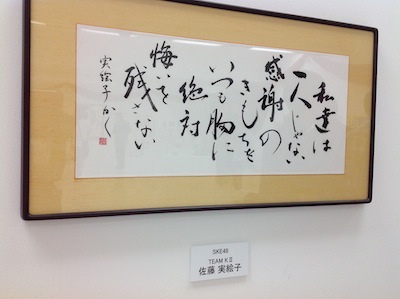 私達は
一人じゃない
感謝の
きもちを
いつも胸に
絶対
悔いを
残さない
実絵子かく
SKE48
TEAM KⅡ
佐藤 実絵子